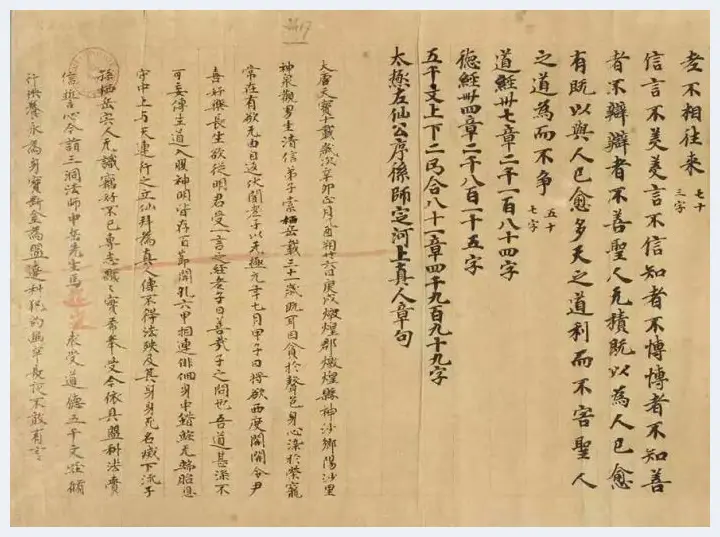 老不相往来 七十三字
信言不美美言不信知者不博博者不知善
者不辯辯者不善聖人无積既以為人已愈
有既以與人已愈多天之道利而不害聖人
之道為而不争 五十七字
道經卅七章二千一百八十四字
德經卌四章二千八百一十五字
五千文上下二卷合八十一章四千九百九十九字
太極左仙公序係師定河上真人章句
大唐天寶十載歲次辛卯正月乙酉朔廿六日庚戌燉煌郡燉煌縣神沙鄉陽沙里
神泉觀男生清信弟子索栖岳載三十一歲既耳目貪於聲色身心染於榮寵
常在有欲无由自返伏聞老子以无極元年七月甲子日將欲西度關關令尹
喜好樂長生欲從明君受一言之經老子曰善哉子之問也吾道甚深不
可妄傳生道入腹神明皆存百節開孔六甲相連徘徊身中錯綜无端胎息
守中上與天連行之立仙拜為真人傳不得法殃及其身身死名滅下流子
孫栖岳宍人无識竊好不已專志顒顒實希奉受今依具盟科法賫
信誓心今詣三洞法師中岳先生馬 求受道德五千文
行供養永為身寶斷金為盟違科犯約幽牢長夜不敢有言